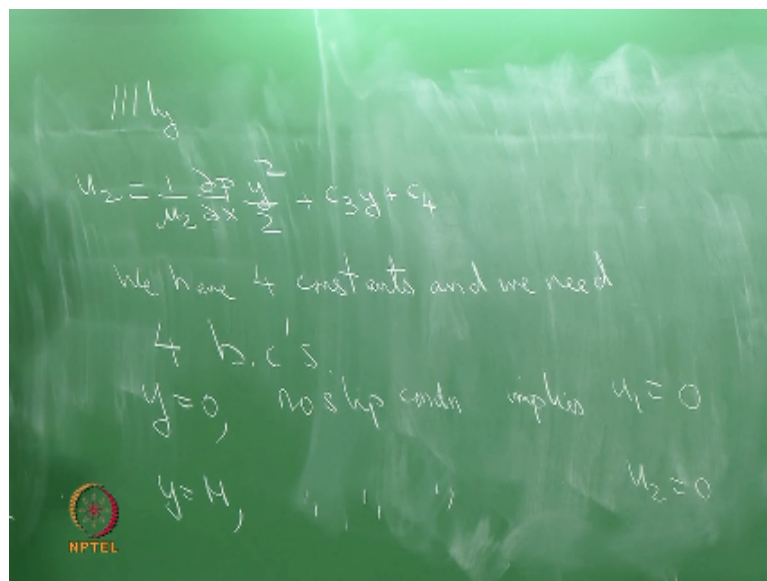 |||ly
u₂ = 1/μ₂ ∂p/∂x y²/2 + c₃y + c₄
We have 4 constants and we need
4 b.c's
y=0, no slip condn implies u₁ = 0
y=H, " " " u₂ = 0
NPTEL